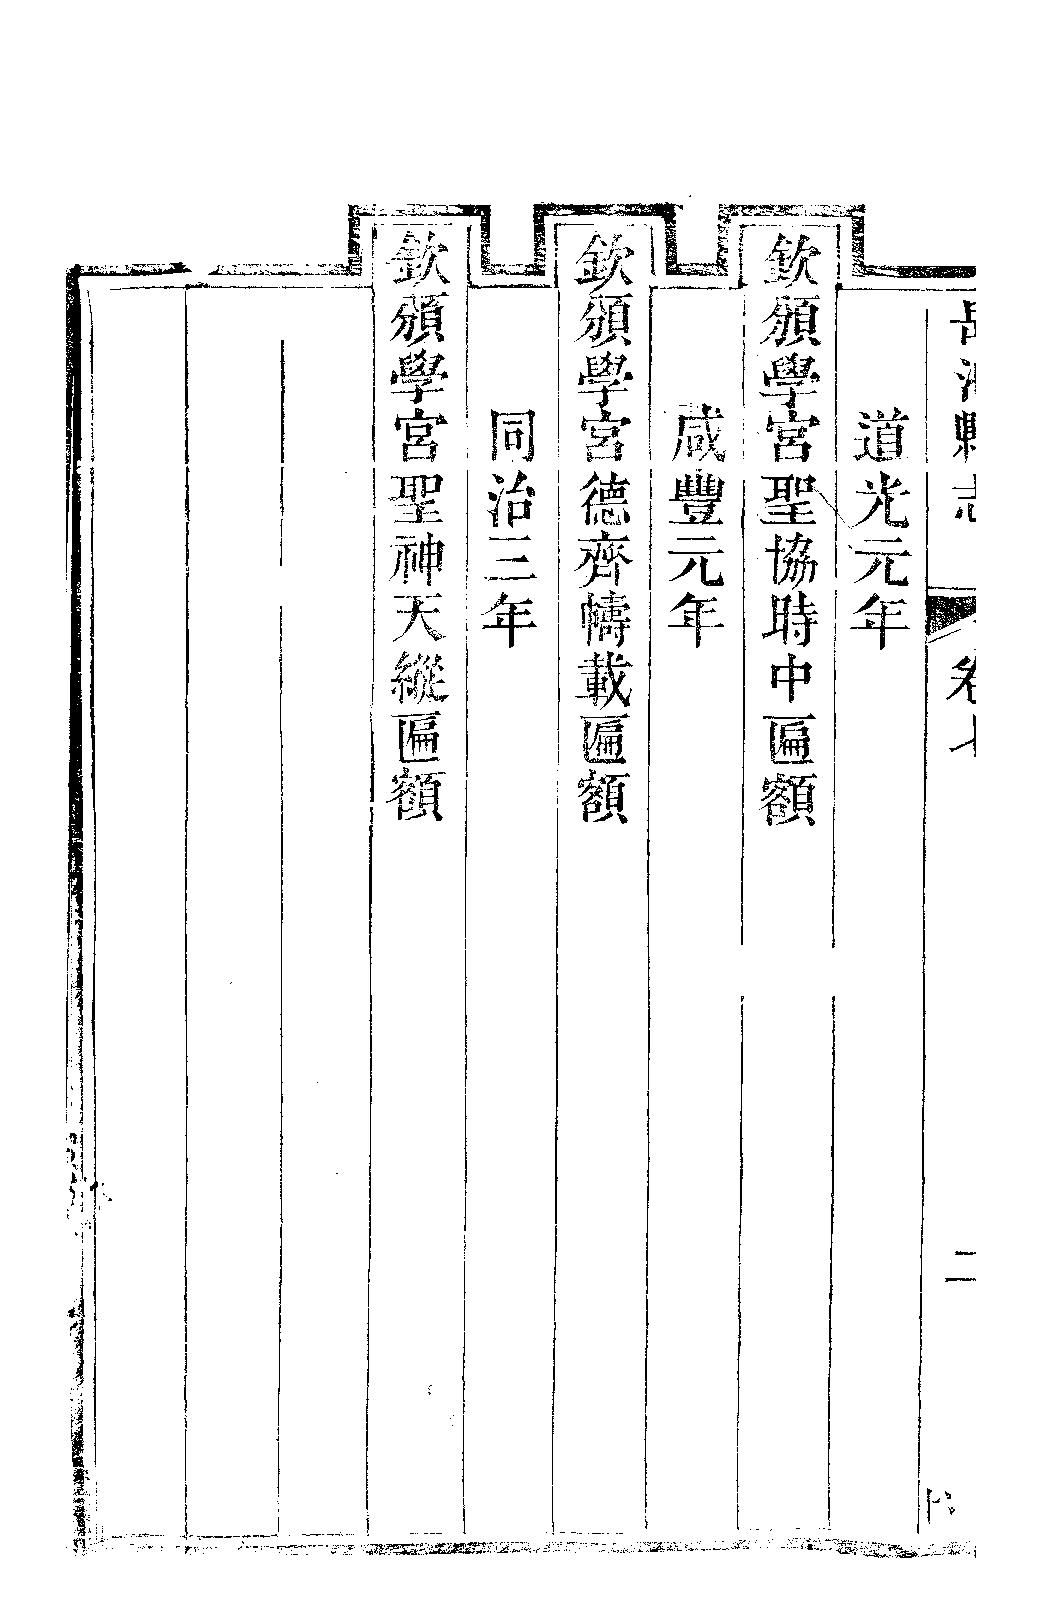 縣志
卷七
二
道光元年
欽頒學宮聖協時中匾額
咸豐元年
欽頒學宮德齊幬載匾額
同治三年
欽頒學宮聖神天縱匾額